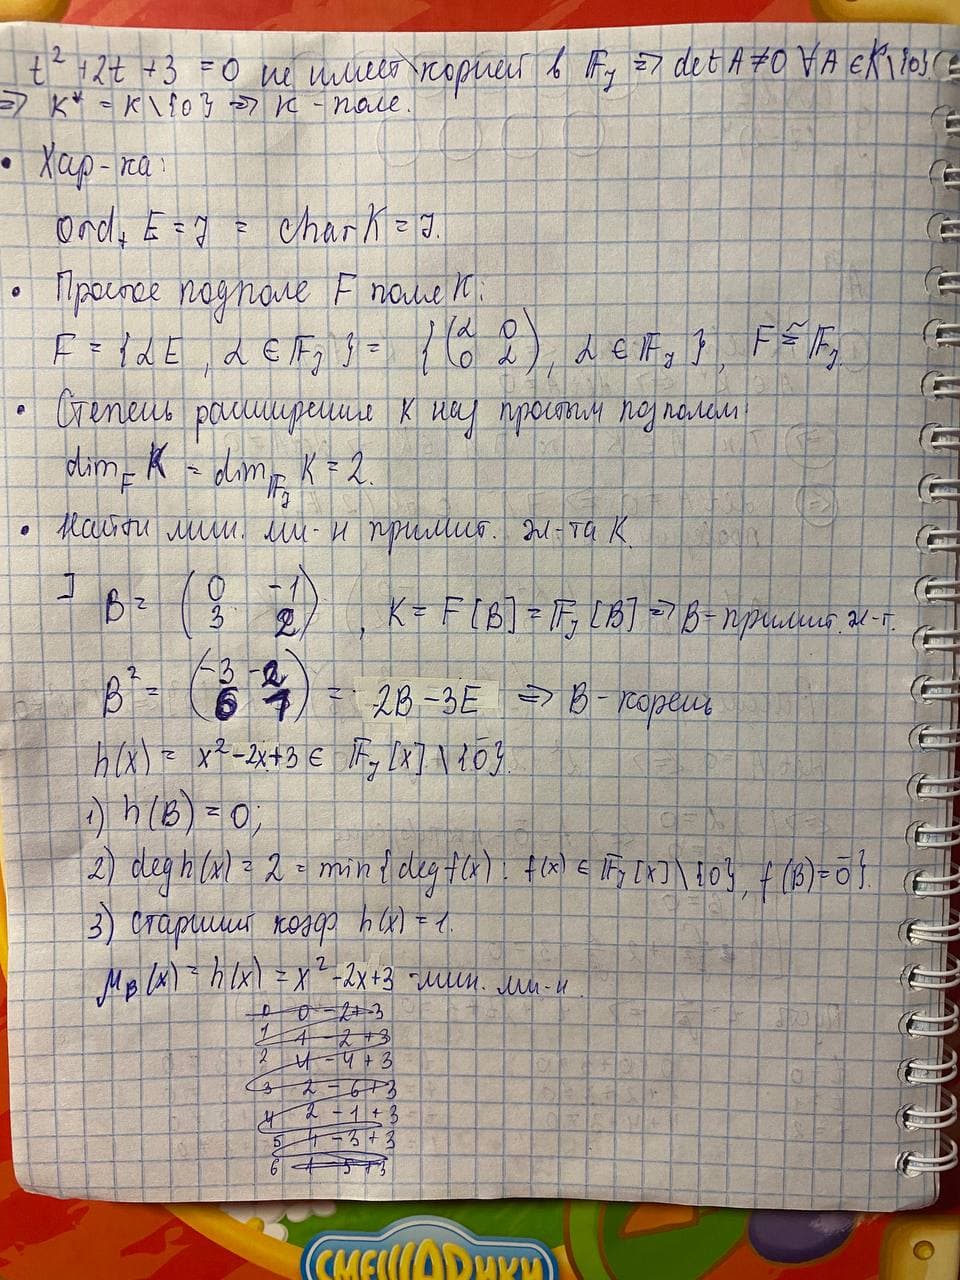 t² + 2t + 3 = 0 не имеет корней в 𝔽₇ ⇒ det A ≠ 0 ∀A ∈ K\{0}
⇒ K* = K\{0} ⇒ K - поле.
• Хар-ка:
ord₊ E = 7 = char K = 7.
• Простое подполе F поля K:
F = {αE, α ∈ 𝔽₇} = {(α 0; 0 α), α ∈ 𝔽₇}, F ≅ 𝔽₇.
• Степень расширения K над простым подполем:
dim_F K = dim_𝔽₇ K = 2.
• Найти мин. мн-н примит. эл-та K.
] B = (0 -1; 3 2), K = F[B] = 𝔽₇[B] ⇒ B - примит. эл-т.
B² = (-3 -2; 6 7) = 2B - 3E ⇒ B - корень
h(x) = x² - 2x + 3 ∈ 𝔽₇[x]\{0}.
1) h(B) = 0;
2) deg h(x) = 2 = min{deg f(x): f(x) ∈ 𝔽₇[x]\{0}, f(B) = 0̄}.
3) старший коэф. h(x) = 1.
μ_B(x) = h(x) = x² - 2x + 3 - мин. мн-н.
0 0 - 2 + 3
1 1 - 2 + 3
2 4 - 4 + 3
3 2 - 6 + 3
4 2 - 1 + 3
5 4 - 3 + 3
6 1 - 5 + 3
СМЕШАРИКИ